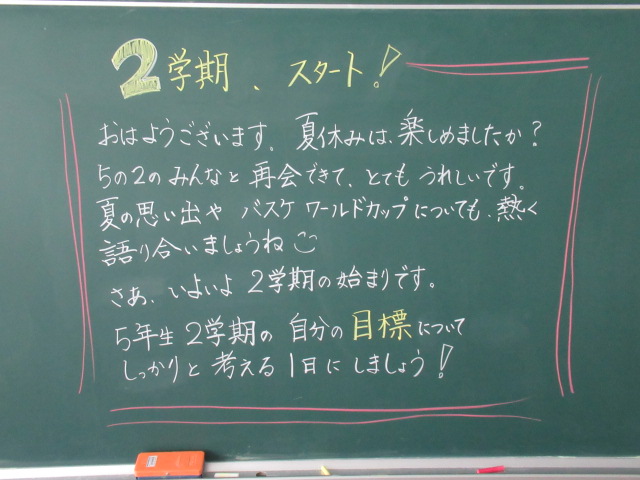 2学期、スタート!
おはようございます。夏休みは、楽しめましたか?
5の2のみんなと再会できて、とてもうれしいです。
夏の思い出やバスケワールドカップについても、熱く
語り合いましょうね
さあ、いよいよ2学期の始まりです。
5年生2学期の自分の目標について
しっかりと考える1日にしましょう!